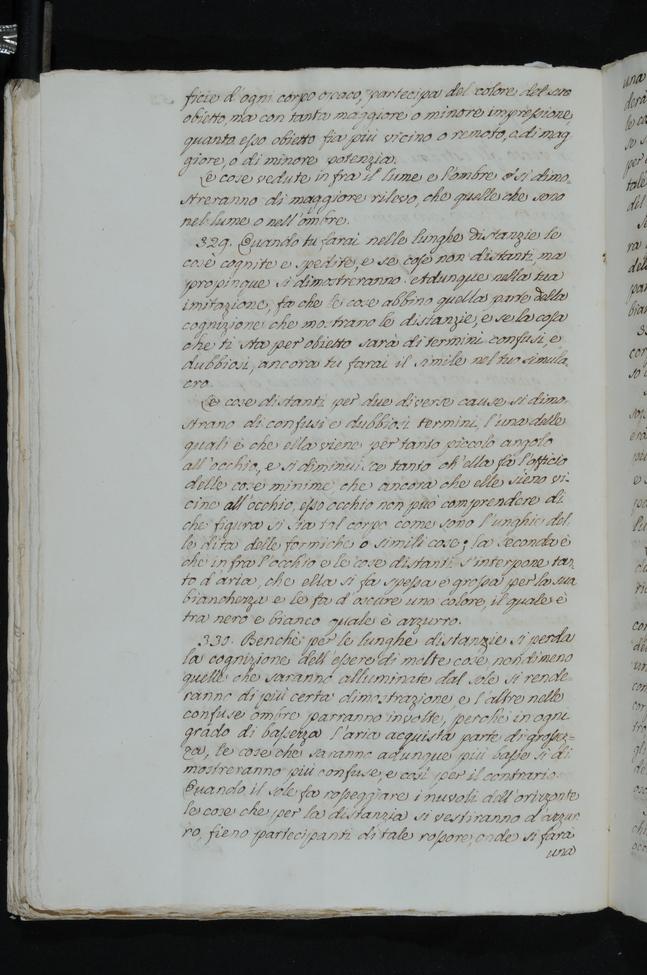 ficie d'ogni corpo opaco, partecipa del colore del suo
obietto, ma con tanta maggiore o minore impressione,
quanto esso obietto fia più vicino o remoto, o di mag
giore, o di minore potenzia.
Le cose vedute in fra il lume e l'ombre si dimo.
streranno di maggiore rilevo, che quelle che sono
nel lume o nell'ombre.
329. Quando tu farai nelle lunghe distanzie le
cose cognite e spedite, e se cose non distanti, ma
propinque si dimostreranno. Adunque nella tua
imitazione, fa che le cose abbino quella parte della
cognizione che mostrano le distanzie, e se la cosa
che ti sta per obietto sarà di termini confusi, e
dubbiosi, ancora tu farai il simile nel tuo simula
cro.
Le cose distanti per due diverse cause si dimo.
strano di confusi e dubbiosi termini, l'una delle
quali è che ella viene per tanto piccolo angolo
all'occhio, e si diminuisce tanto ch'ella fa l'officio
delle cose minime che ancora che elle sieno vi
cine all'occhio, esso occhio non può comprendere di
che figura si sia tal corpo come sono l'unghie del
le dita delle formiche o simili cose; la seconda è
che infra l'occhio e le cose distanti s'interpone tan
to d'aria, che ella si fa spessa e grossa per la sua
bianchezza e le fa d'oscure uno colore, il quale è
tra nero e bianco quale è azzurro.
330. Benchè per le lunghe distanzie si perda
la cognizione dell'essere di molte cose, nondimeno
quelle che saranno alluminate dal sole si rende
ranno di più certa dimostrazione, e l'altre nelle
confuse ombre parranno involte, perchè in ogni
grado di bassezza l'aria acquista parte di grossez=
za, le cose che saranno adunque più basse si di
mostreranno più confuse, e così per il contrario.
Quando il sole fa rosseggiare i nuvoli dell'orizzonte
le cose che per la distanzia si vestiranno d'azzur
ro, fieno partecipanti di tale rossore, onde si farà
una